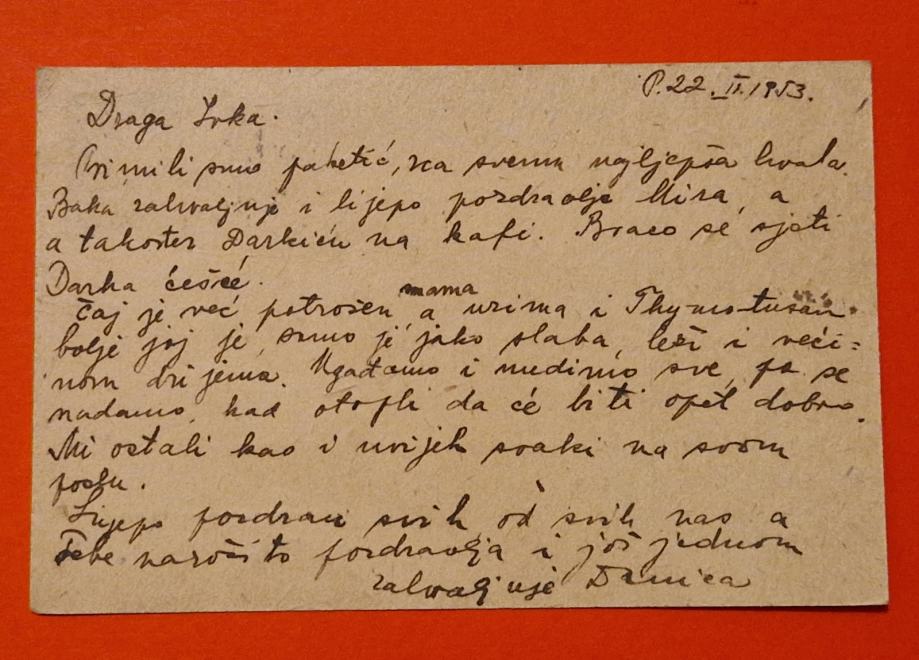 P. 22. II. 1953.
Draga Ivka.
Primili smo paketić, za svemu najljepša hvala.
Baka zahvaljuje i lijepo pozdravlje Mira, a
a također Darkiću na kafi. Braco se sjeti
Darka češće.
mama
Čaj je već potrošen a uzima i Thymo-tusan
bolje joj je, samo je jako slaba, leži i veći=
nom drijema. Ugađamo i nudimo sve, pa se
nadamo, kad otopli da će biti opet dobro.
Mi ostali kao i uvijek svaki na svom
poslu.
Lijepo pozdrav svih od svih nas a
Tebe naročito pozdravlja i još jednom
zahvaljuje Danica